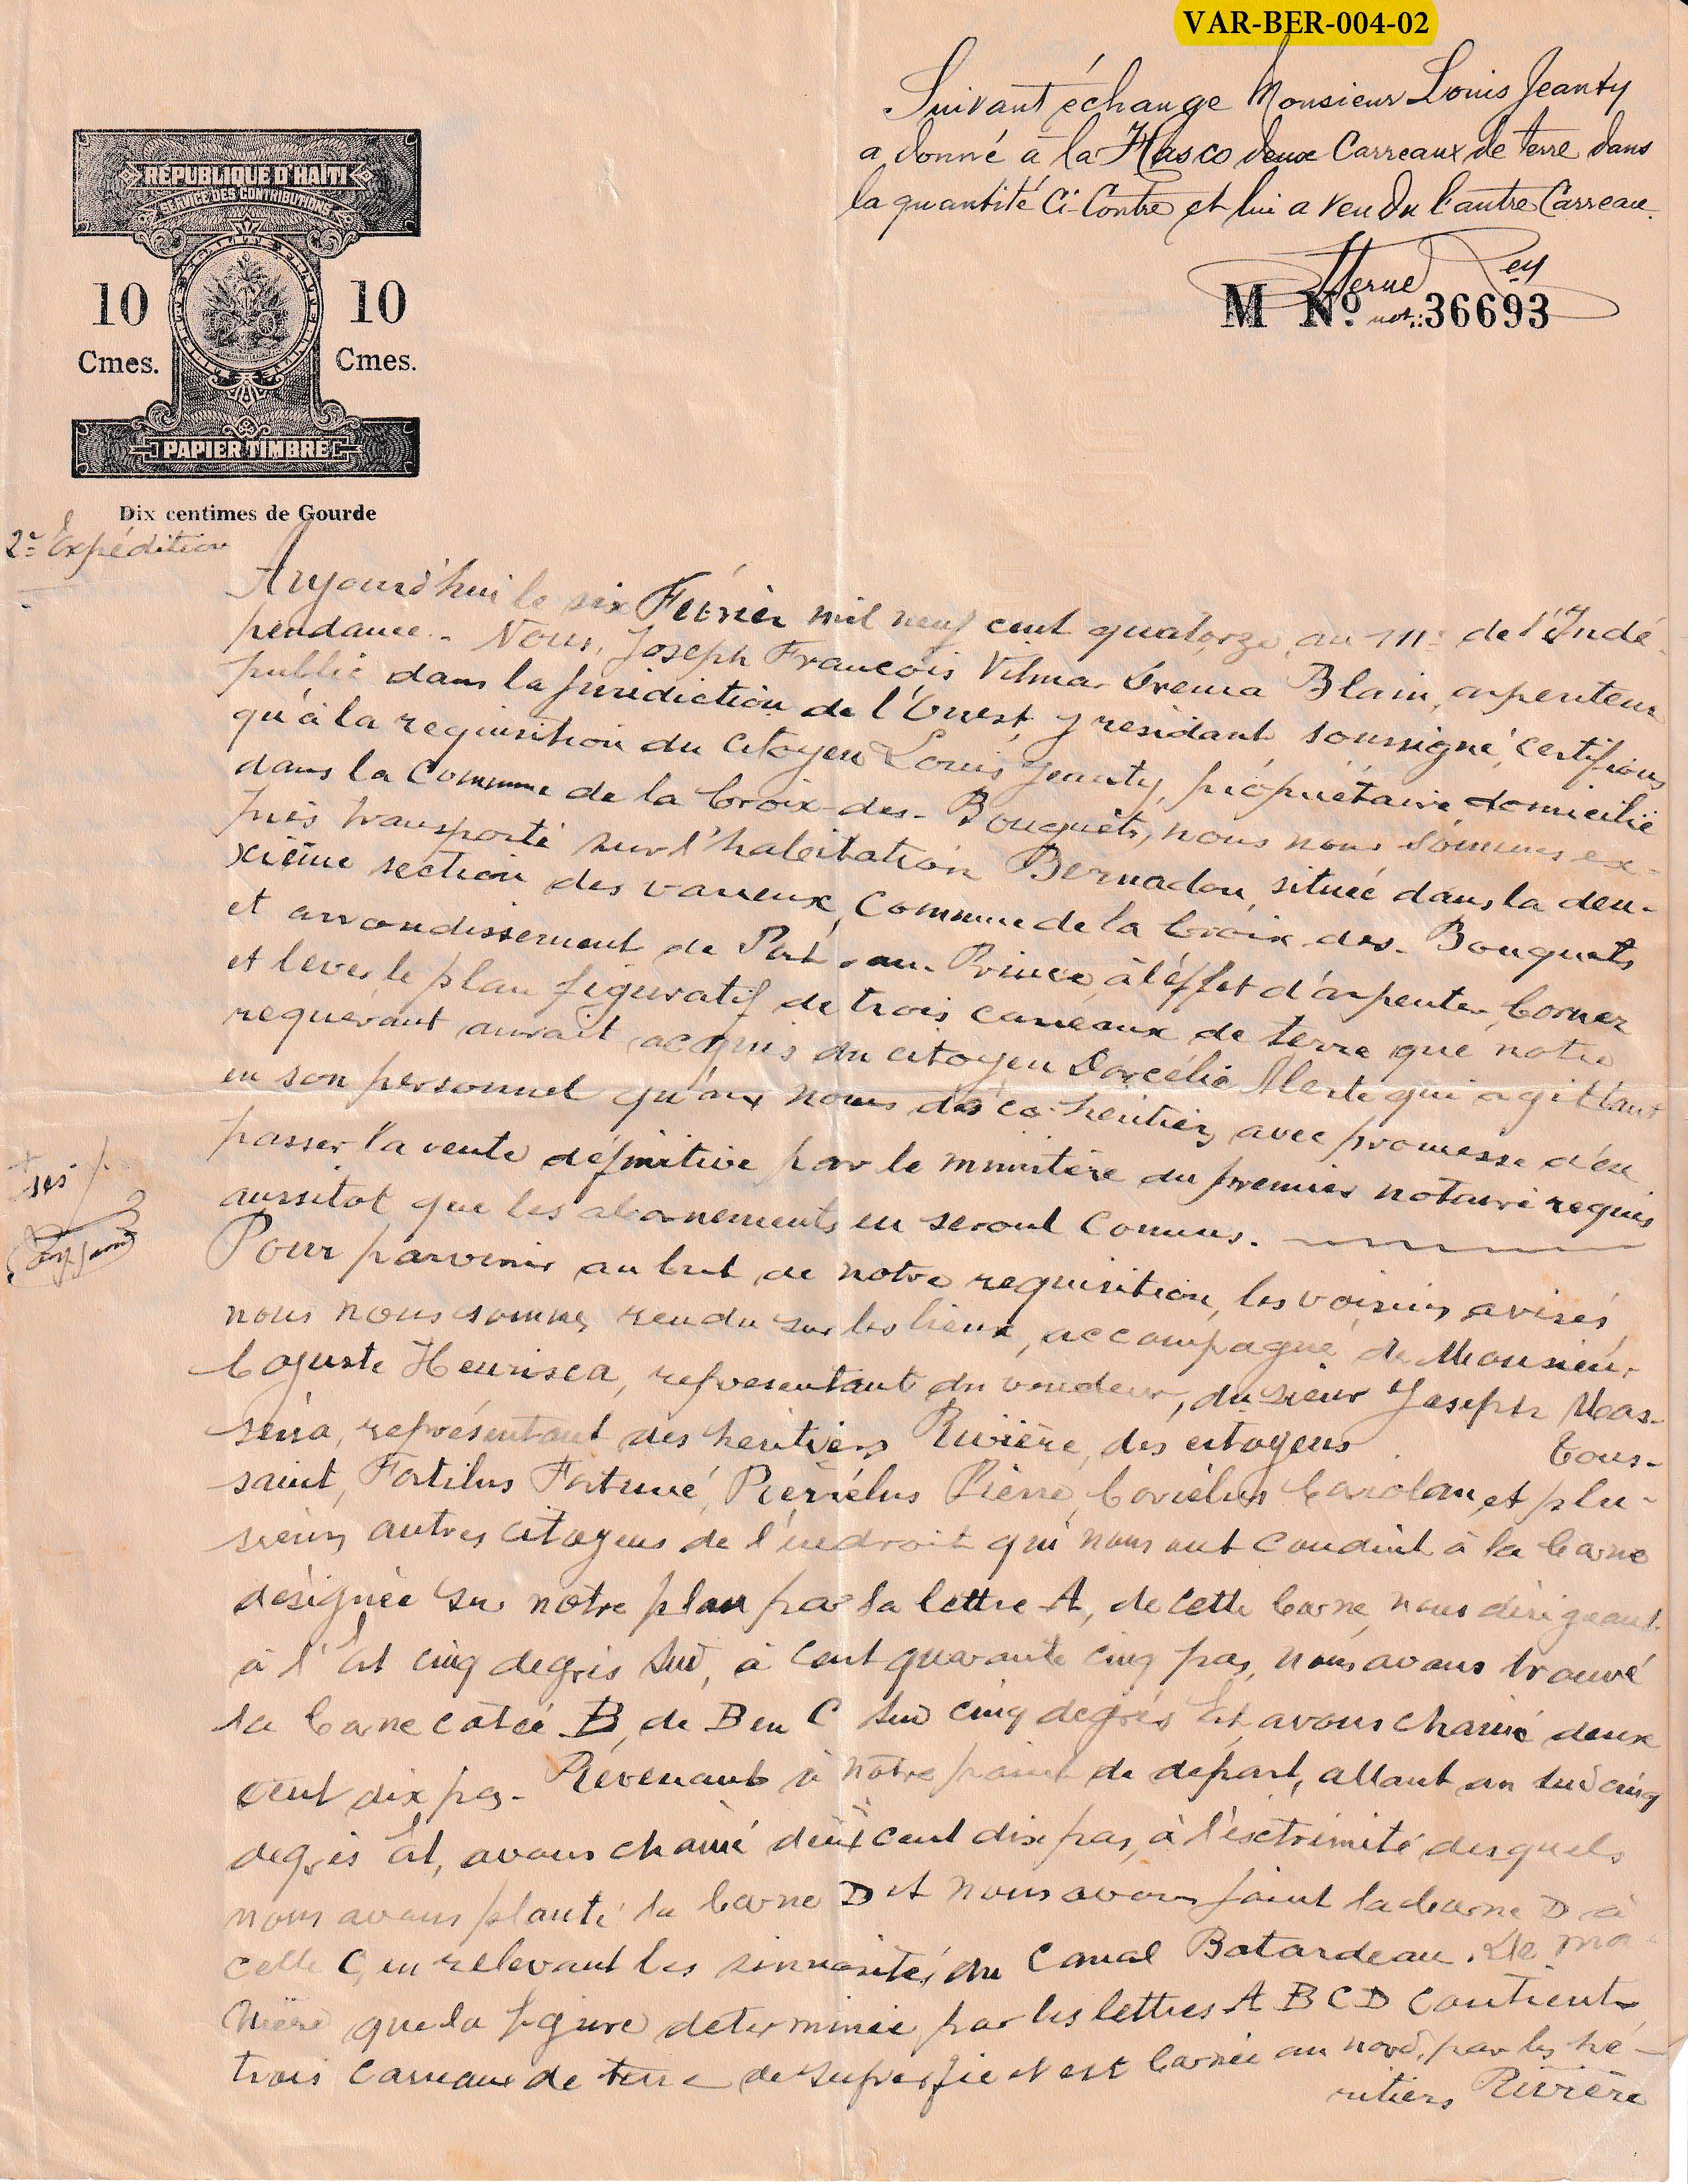 VAR-BER-004-02
Suivant échange Monsieur Louis Jeanty
a donné à la Hasco deux Carreaux de terre dans
la quantité Ci-Contre et lui a vendu l'autre Carreau.
Herne Rey
not.:
M No. 36693
RÉPUBLIQUE D'HAITI
SERVICE DES CONTRIBUTIONS
10 10
Cmes. Cmes.
PAPIER TIMBRÉ
Dix centimes de Gourde
2e Expédition
Aujourd'hui le six Février mil neuf cent quatorze, au 111e de l'Indé-
pendance. Nous, Joseph François Vilmar Brema Blain, arpenteur
public dans la juridiction de l'Ouest, y résidant soussigné, certifions
qu'à la requisition du citoyen Louis Jeanty, propriétaire domicilié
dans la Commune de la Croix-des-Bouquets, nous nous sommes ex-
près transporté sur l'habitation Bernadou, située dans la deu-
xième section des varreux, Commune de la Croix-des-Bouquets
et arrondissement de Port-au-Prince, à l'éffet d'arpenter, borner
et lever le plan figuratif de trois carreaux de terre que notre
requérant aurait acquis du citoyen Dorcélie Alerte qui agit tant
en son personnel qu'aux noms des co-héritiers, avec promesse d'en
passer la vente définitive par le ministère du premier notaire requis
aussitot que les abornements en seront connus.
+ ses
Pour parvenir au but de notre requisition, les voisins avisés,
nous nous sommes rendu sur les lieux, accompagné de Monsieur
Cajuste Heurisca, représentant du vendeur, du sieur Joseph Mas-
séna, représentant des héritiers Rivière, des citoyens Tous-
saint, Fortilus Fortuné, Pierrélus Pierre, Coriélus Carolan, et plu-
sieurs autres citoyens de l'endroit qui nous ont conduit à la borne
désignée sur notre plan par la lettre A, de cette borne, nous dirigeant
à l'Est cinq degrés Sud, à Cent quarante cinq pas, nous avons trouvé
la borne cotée B, de B en C Sud cinq degrés Est avons chainé deux
cent dix pas. Revenant à notre point de départ, allant au Sud cinq
degrés Est, avons chainé deux cent dix pas, à l'éxtrimité desquels
nous avons planté la borne D et nous avons joint la borne D à
celle C, en relevant les sinuosités du Canal Batardeau. De ma-
nière que la figure determinée par les lettres A B C D Contient
trois Carreaux de terre de superficie et est bornée au nord, par les hé-
ritiers Rivière